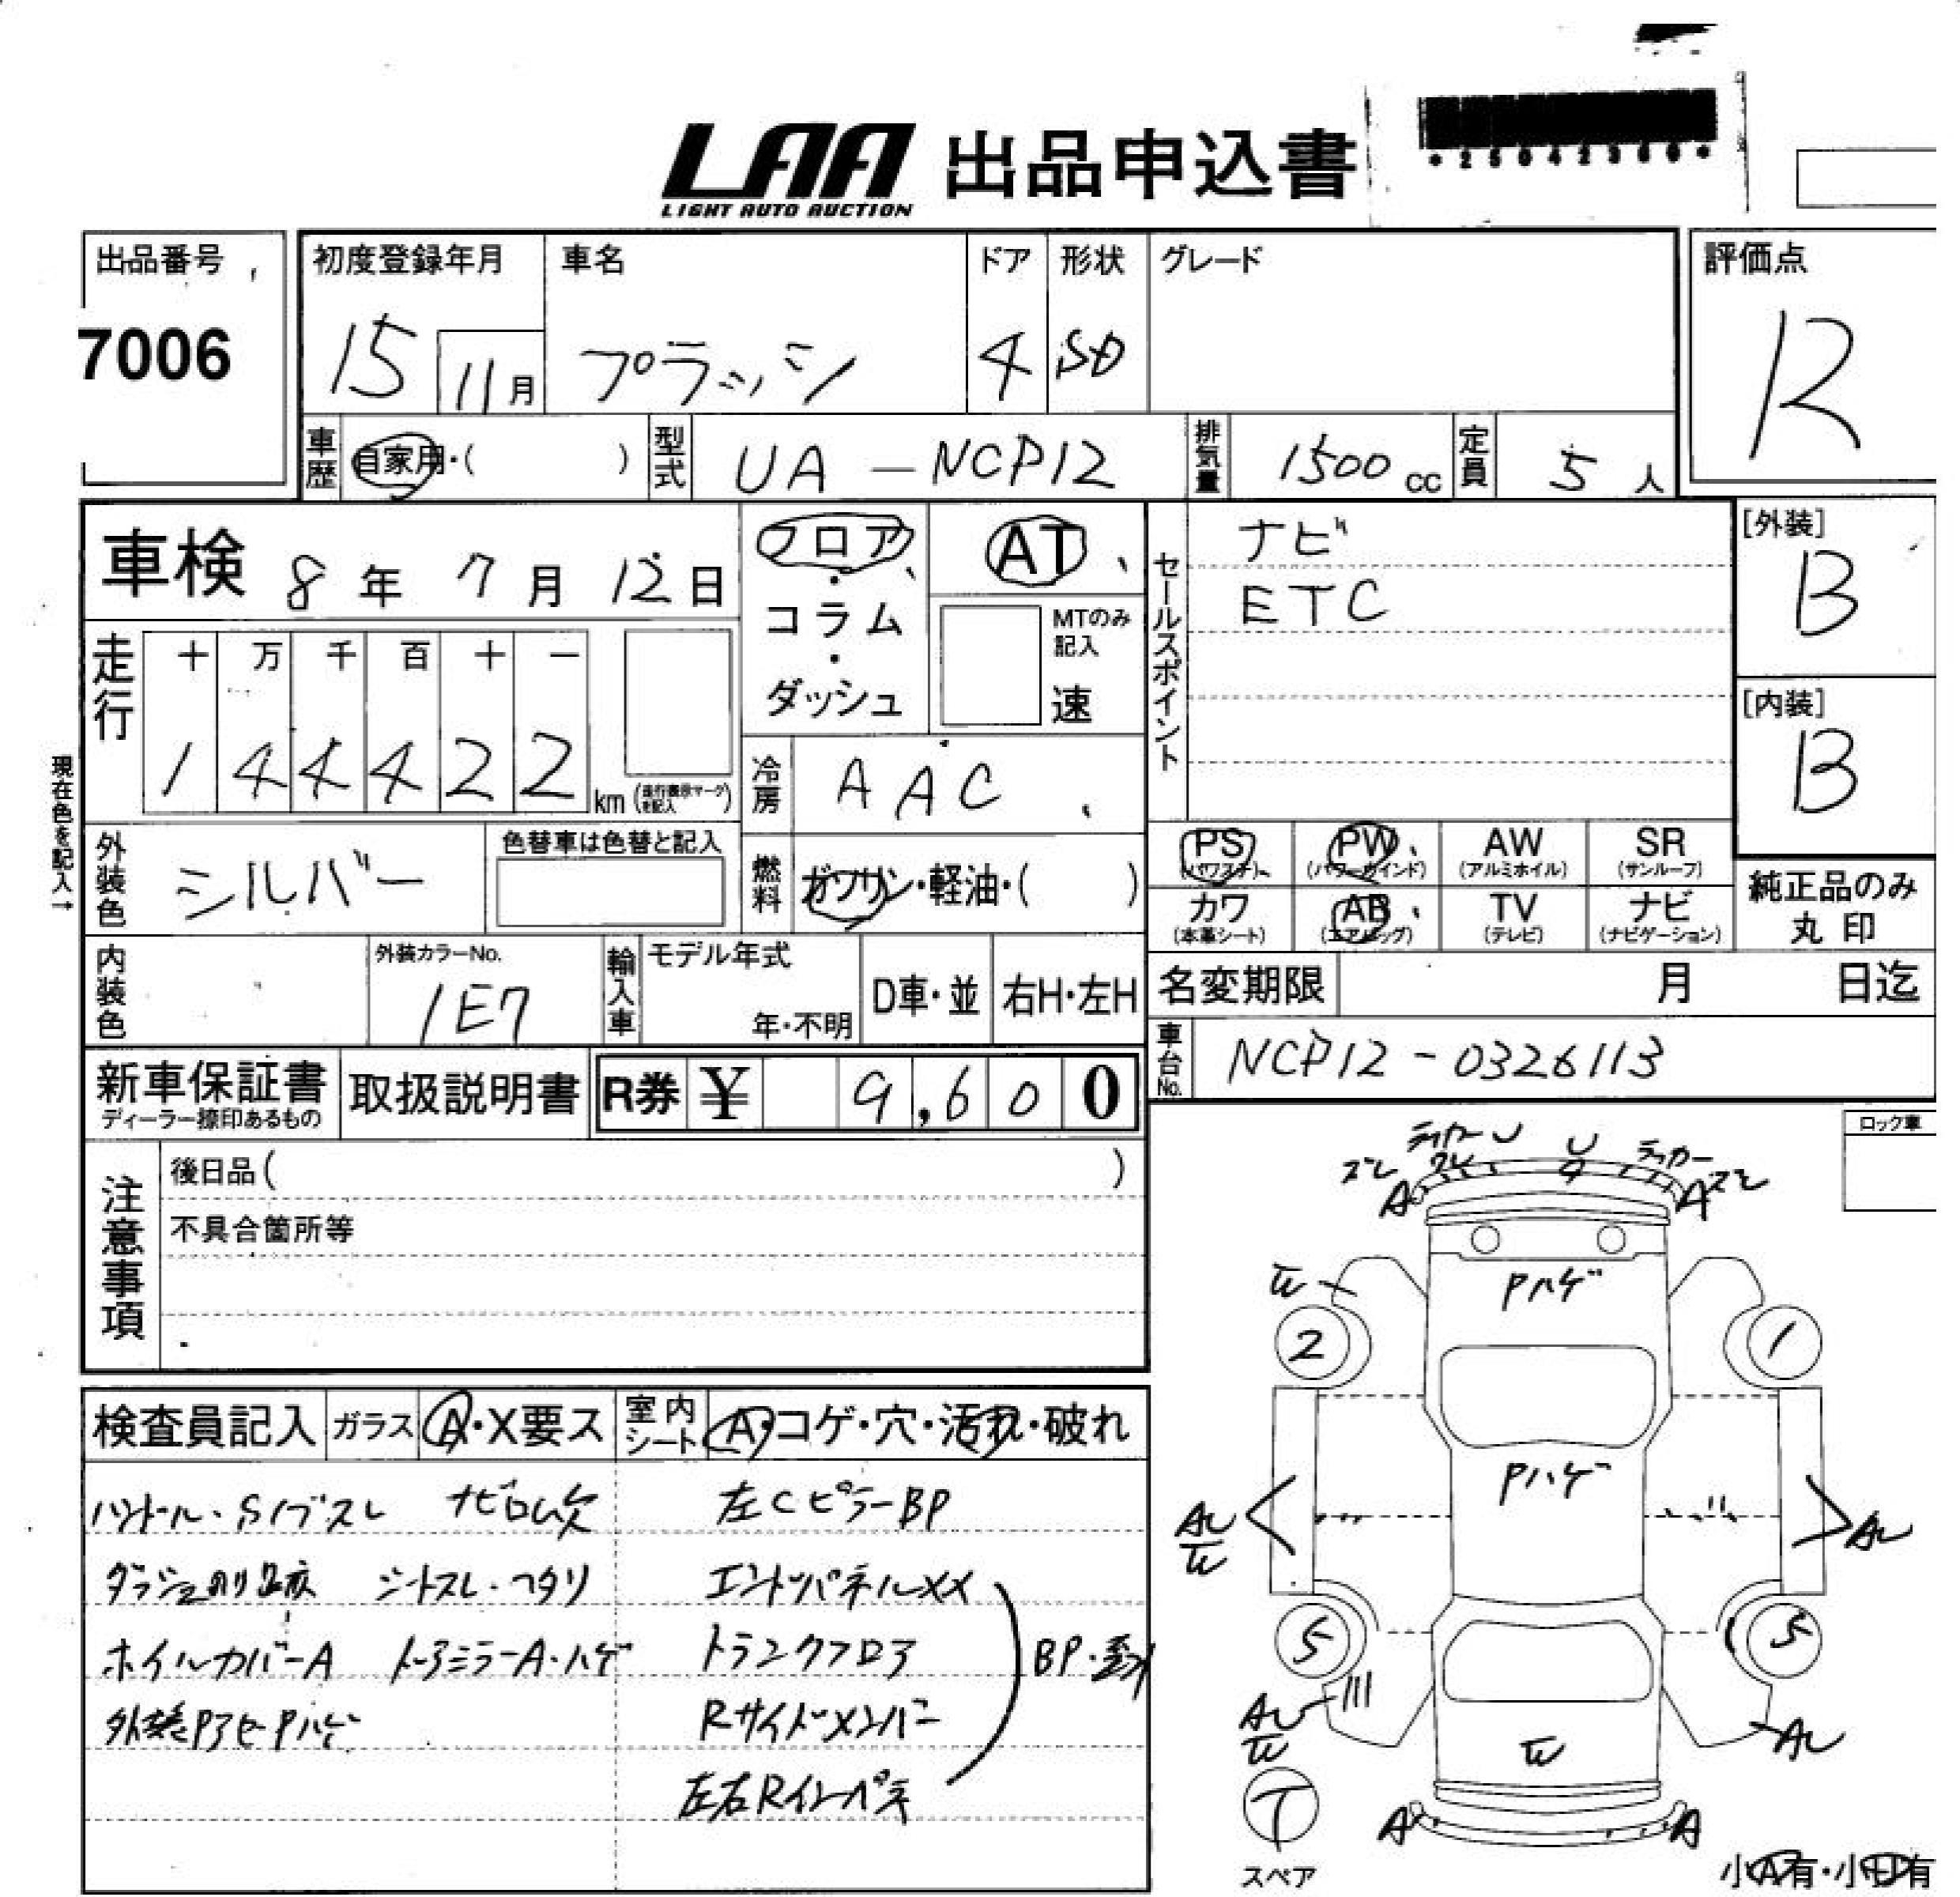 LAA 出品申込書
LIGHT AUTO AUCTION
*25042360*
出品番号
7006
初度登録年月
15
11月
車名
プラッツ
ドア
4
形状
SD
グレード
評価点
R
車歴
自家用・( )
型式
UA-NCP12
排気量
1500cc
定員
5人
車検 8年 7月 12日
フロア・コラム・ダッシュ
AT
MTのみ記入
速
セールスポイント
ナビ
ETC
[外装]
B
[内装]
B
現在色を記入→
走行
十 万 千 百 十 一
1 4 4 4 2 2 km (走行表示マークを記入)
冷房
AAC
外装色
シルバー
色替車は色替と記入
燃料
ガソリン・軽油・( )
PS (パワステ)
PW (パワーウインド)
AW (アルミホイル)
SR (サンルーフ)
カワ (本革シート)
AB (エアバッグ)
TV (テレビ)
ナビ (ナビゲーション)
純正品のみ丸印
内装色
外装カラーNo.
1E7
輸入車
モデル年式
年・不明
D車・並
右H・左H
名変期限 月 日迄
車台No.
NCP12-0326113
新車保証書
ディーラー捺印あるもの
取扱説明書
R券 ¥ 9,600
注意事項
後日品( )
不具合箇所等
ロック車
検査員記入
ガラス A・X要ス
室内シート A・コゲ・穴・汚れ・破れ
ハンドル・Sノブスレ ナビロム欠 左CピラーBP
ダッシュのり跡 シートスレ・ヘタリ エンドパネルXX
ホイルカバーA ドアミラーA・ハゲ トランクフロア
BP・歪
外装Pアセ・Pハゲ Rサイドメンバー
左右Rインパネ
ステッカー U U ステッカー
ズレ ワレ ズレ
A A
W
Pハゲ
2 1
Pハゲ
AU
W
AU
5 5
AU
W
W
AU
T
A A
スペア
小A有・小U有